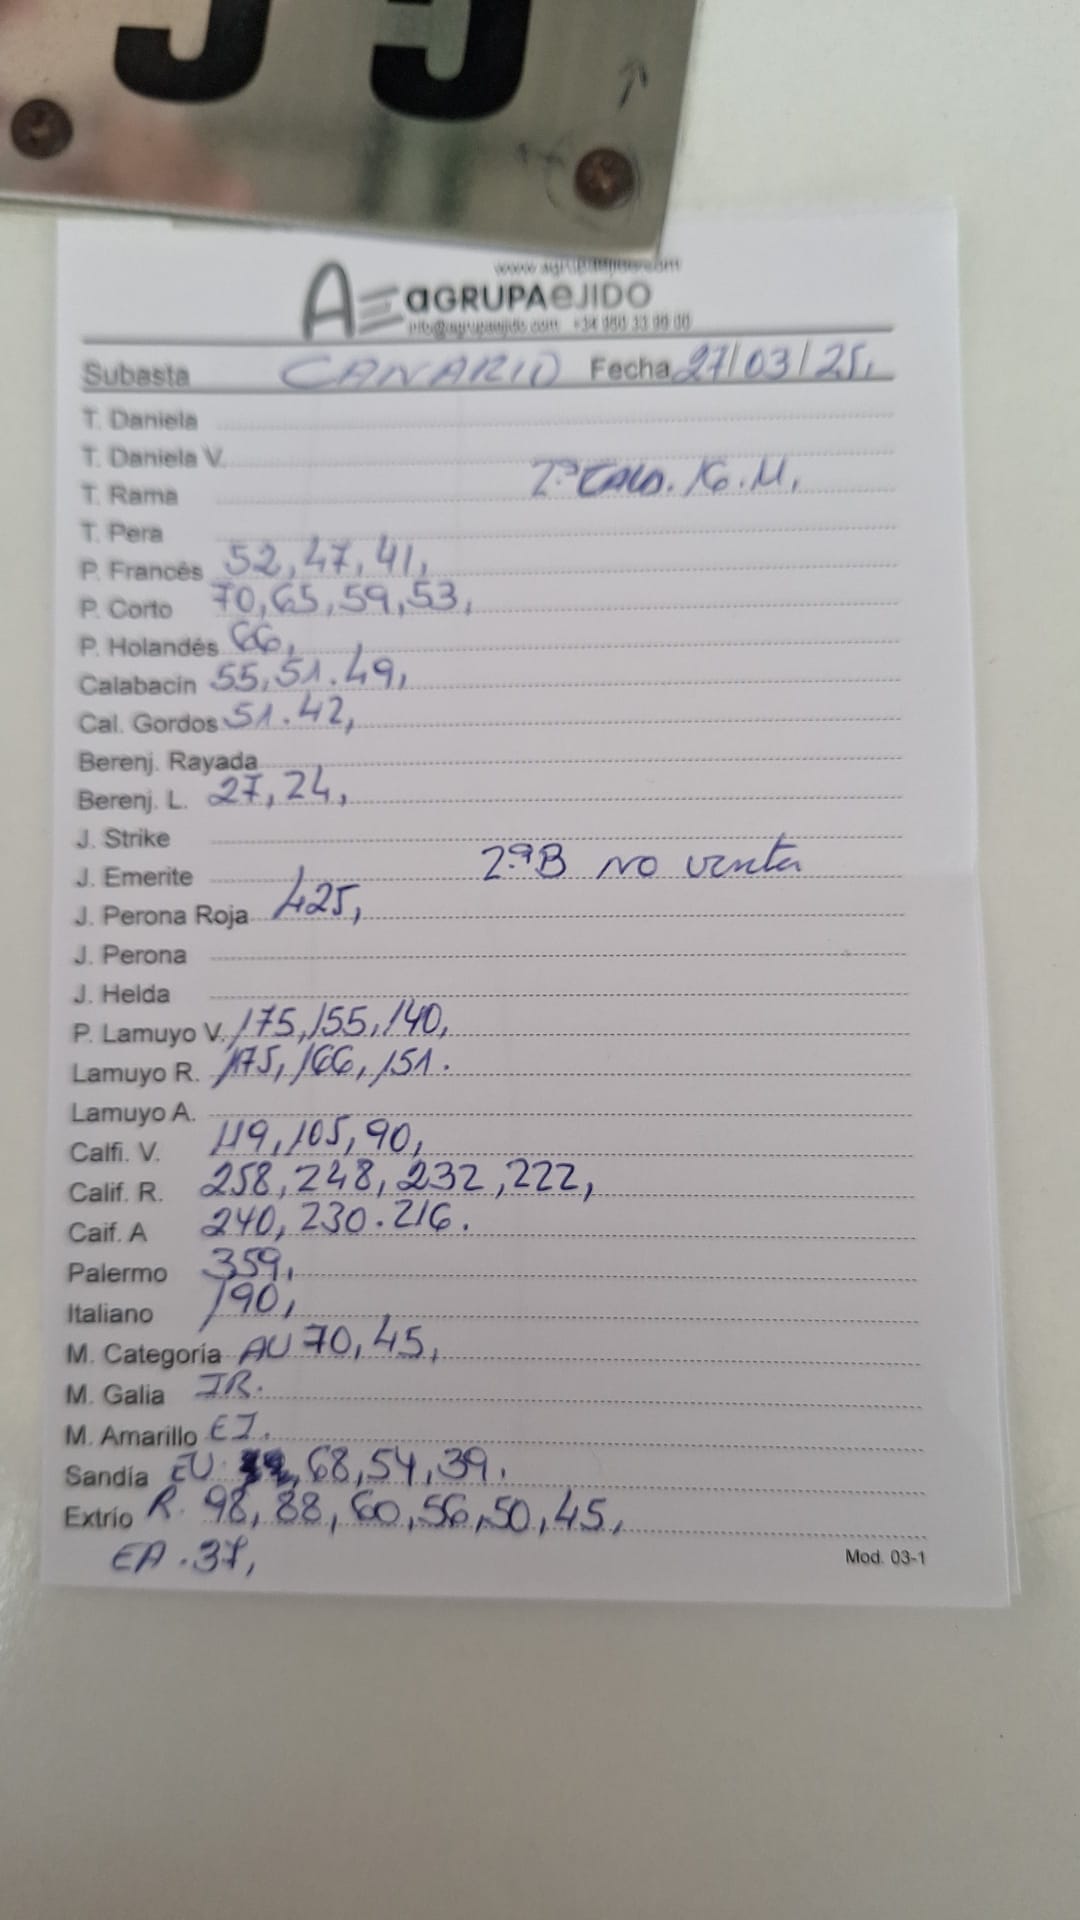 www.agrupaejido.com
AE aGRUPAeJIDO
info@agrupaejido.com +34 950 33 99 00
Subasta CANARIO Fecha 27/03/25,
T. Daniela
T. Daniela V.
T. Rama 2ª CALD. KG.M,
T. Pera
P. Francés 52, 47, 41,
P. Corto 70, 65, 59, 53,
P. Holandés 66,
Calabacin 55, 51. 49,
Cal. Gordos 51. 42,
Berenj. Rayada
Berenj. L. 27, 24,
J. Strike
J. Emerite 2.ª B no venta
J. Perona Roja 425,
J. Perona
J. Helda
P. Lamuyo V. 175, 155, 140,
Lamuyo R. 175, 166, 151.
Lamuyo A.
Calfi. V. 119, 105, 90,
Calif. R. 258, 248, 232, 222,
Caif. A 240, 230. 216.
Palermo 359,
Italiano 190,
M. Categoría AU 70, 45,
M. Galia IR.
M. Amarillo EJ.
Sandía EU , 68, 54, 39.
Extrío R. 98, 88, 60, 56, 50, 45,
EA . 37,
Mod. 03-1